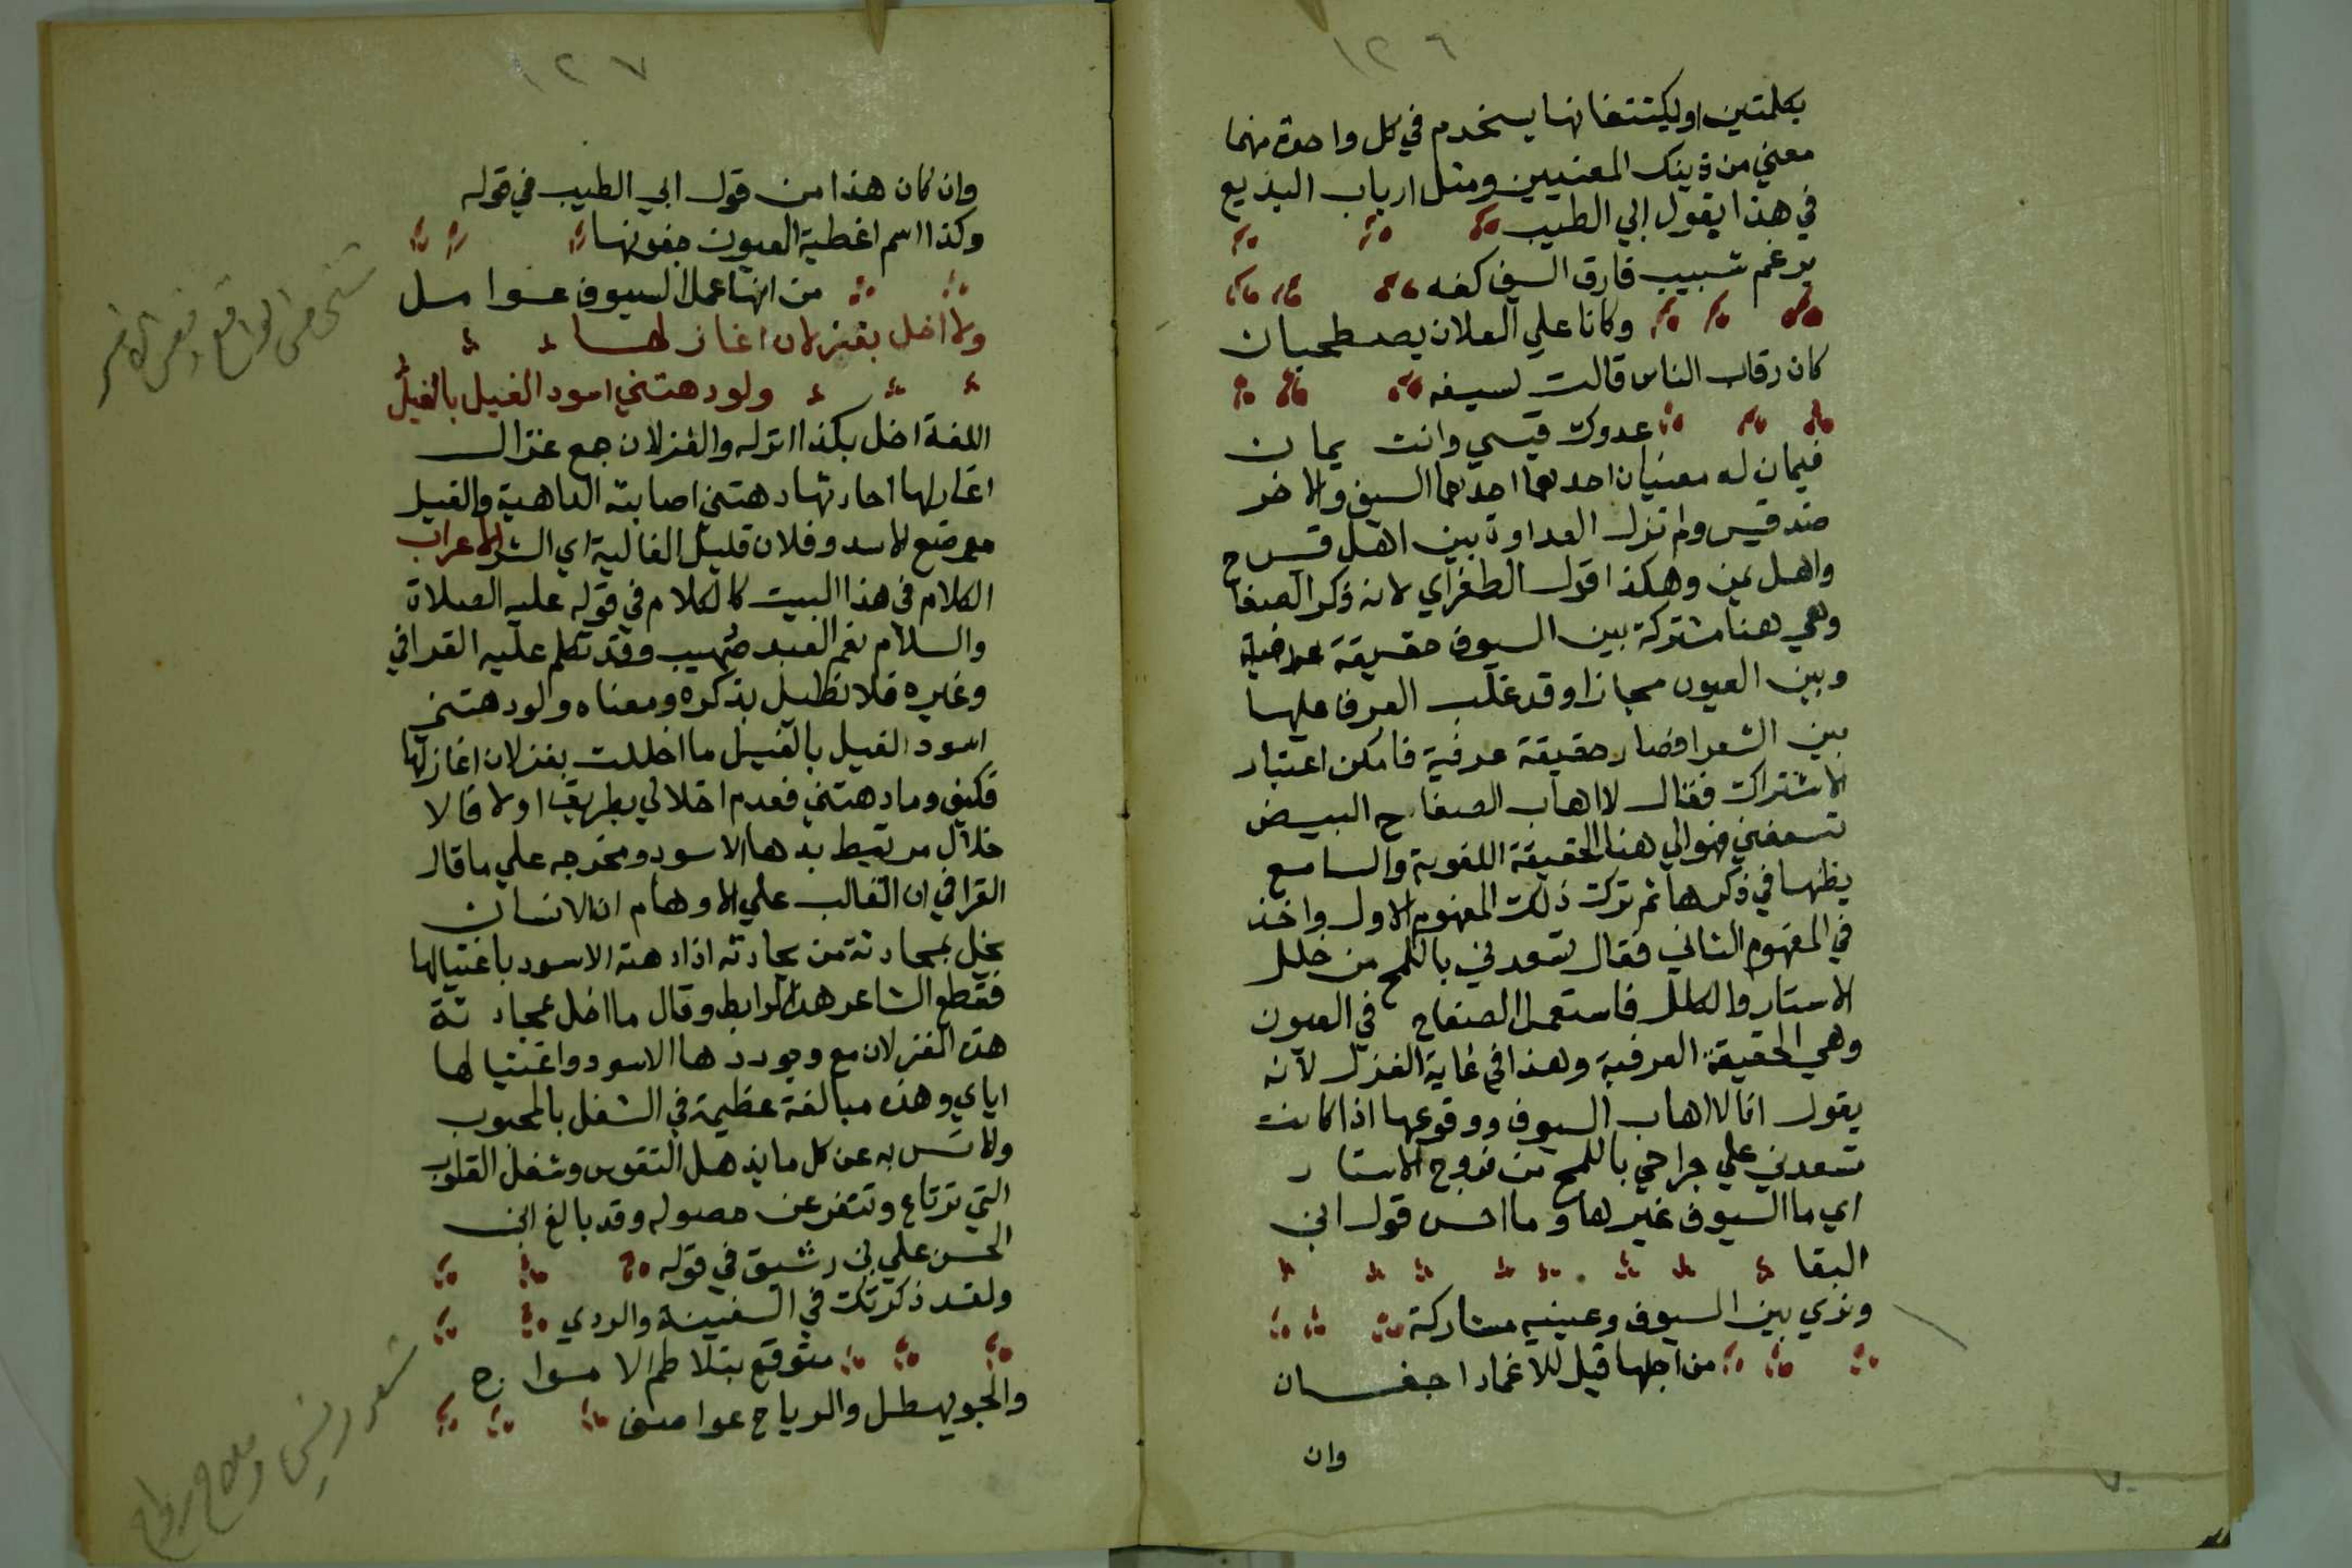 ١٢٦
بكلمتين اوليكتنفانها يستخدم في كل واحدة منهما
معني من ذينك المعنيين ومثل ارباب البذيع
في هذا يقول ابي الطيب
برغم شبيب فارق السيف كفه
وكانا علي العلان يصطحبان
كان رقاب الناس قالت لسيفه
عدوك قيسي وانت يمان
فيمان له معنيان احدهما احدهما السيف والاخر
ضد قيس ولم تزل العداوة بين اهل قيس
واهل يمن وهكذا قول الطغراي لانه ذكر الصفاح
وهي هنا مشتركة بين السيوف حقيقة
وبين العيون مجازا وقد غلب العرف عليها
بين الشعرا فصار حقيقة عرفية فامكن اعتبار
الاشتراك فقال لا اهاب الصفاح البيض
تسعفني فهو الي هنا الحقيقة اللغوية والسامع
يظنها في ذكرها ثم ترك ذلك المفهوم الاول واخذ
في المفهوم الثاني فقال تسعدني باللمح من خلل
الاستار والكلل فاستعمل الصفاح في العيون
وهي الحقيقة العرفية وهذا في غاية الغزل لانه
يقول انا لا اهاب السيوف ووقوعها اذا كانت
تسعدني علي جراحي باللمح من فروج الاستار
اي ما السيوف غيرها وما احسن قول ابي
البقا
ونري بين السيوف وعينيه مشاركة
من اجلها قيل للاغماد اجفان
وان
١٢٧
وان كان هذا من قول ابي الطيب في قوله
وكذا اسم اغطية العيون جفونها
من انها عمل السيوف عوامل
ولا اخل بغزلان اغازلها
ولو دهتني اسود الغيل بالغيل
اللغة اخل بكذا اتركه والغزلان جمع غزال
اغازلها احادثها دهتني اصابته الداهية والغيل
موضع الاسد وفلان قليل الغالية اي الشر الاعراب
الكلام في هذا البيت كالكلام في قوله عليه الصلاة
والسلام نعم العبد صهيب وقد تكلم عليه القرافي
وغيره فلا نطيل بذكره ومعناه ولو دهتني
اسود الغيل بالغيل ما اخللت بغزلان اغازلها
فكيف وما دهتني فعدم اخلالي بطريق اولا فالا
خلال مرتبط بدها الاسود ومخرجه علي ما قال
القرافي ان الغالب علي الاوهام ان الانسان
يخل بمحادثة من يحادثه اذا دهته الاسود باغتيالها
فقطع الشاعر هذا الرابط وقال ما اخل بمحادثة
هذه الغزلان مع وجود دها الاسود واغتيالها
اياي وهذه مبالغة عظيمة في الشغل بالمحبوب
به عن كل ما يذهل النفوس وشغل القلوب
التي ترتاع وتنفر عن حصوله وقد بالغ ابن
الحسن علي بن رشيق في قوله
ولقد ذكرتك في السفينة والردي
متوقع بتلاطم الامواج
والجو يهطل والرياح عواصف